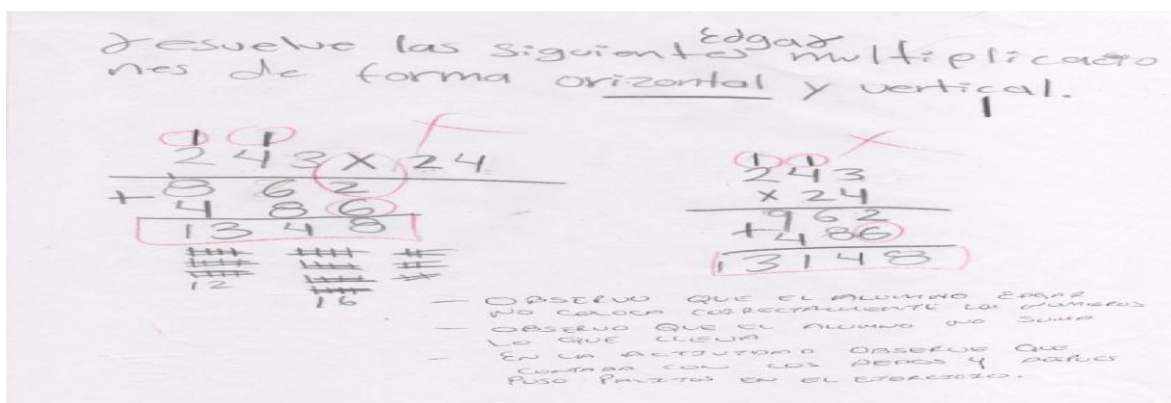 Edgar
resuelve las siguientes multiplicacio
nes de forma orizontal y vertical.
1 1
2 4 3 X 24
+ 8 6 2
4 8 6
1 3 4 8
12 16
1 1
2 4 3
x 24
9 6 2
+ 4 8 6
1 3 1 4 8
- OBSERVO QUE EL ALUMNO EDGAR
NO COLOCA CORRECTAMENTE LOS NUMEROS
- OBSERVO QUE EL ALUMNO NO SUMA
LO QUE LLEVA
- EN LA ACTIVIDAD OBSERVE QUE
CONTABA CON LOS DEDOS Y DESPUES
PUSO PALITOS EN EL EJERCICIO.